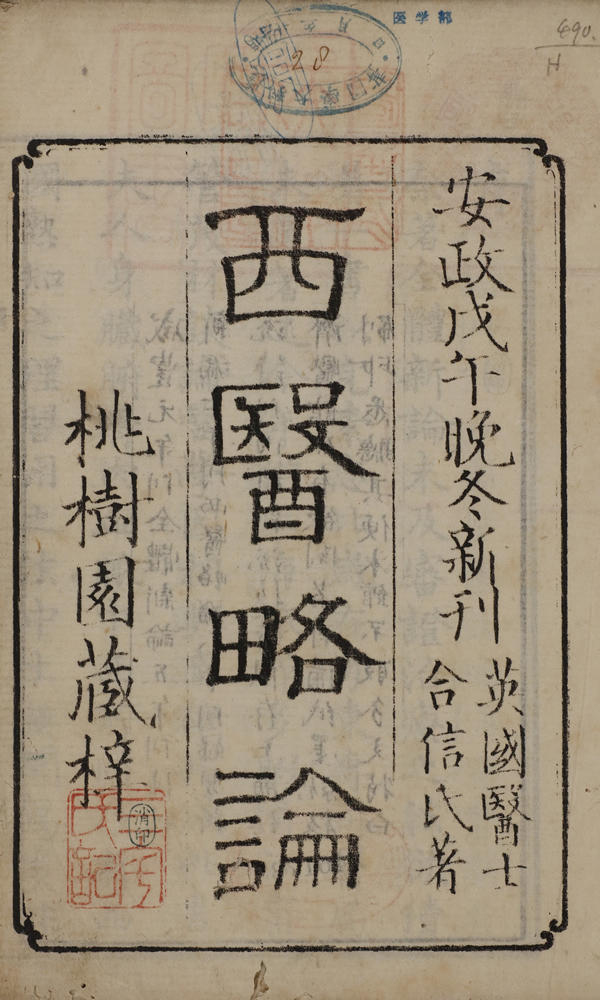 医学部
490.
H
28
安政戊午晩冬新刊
英國醫士
合信氏著
西醫略論
桃樹園蔵梓
消印